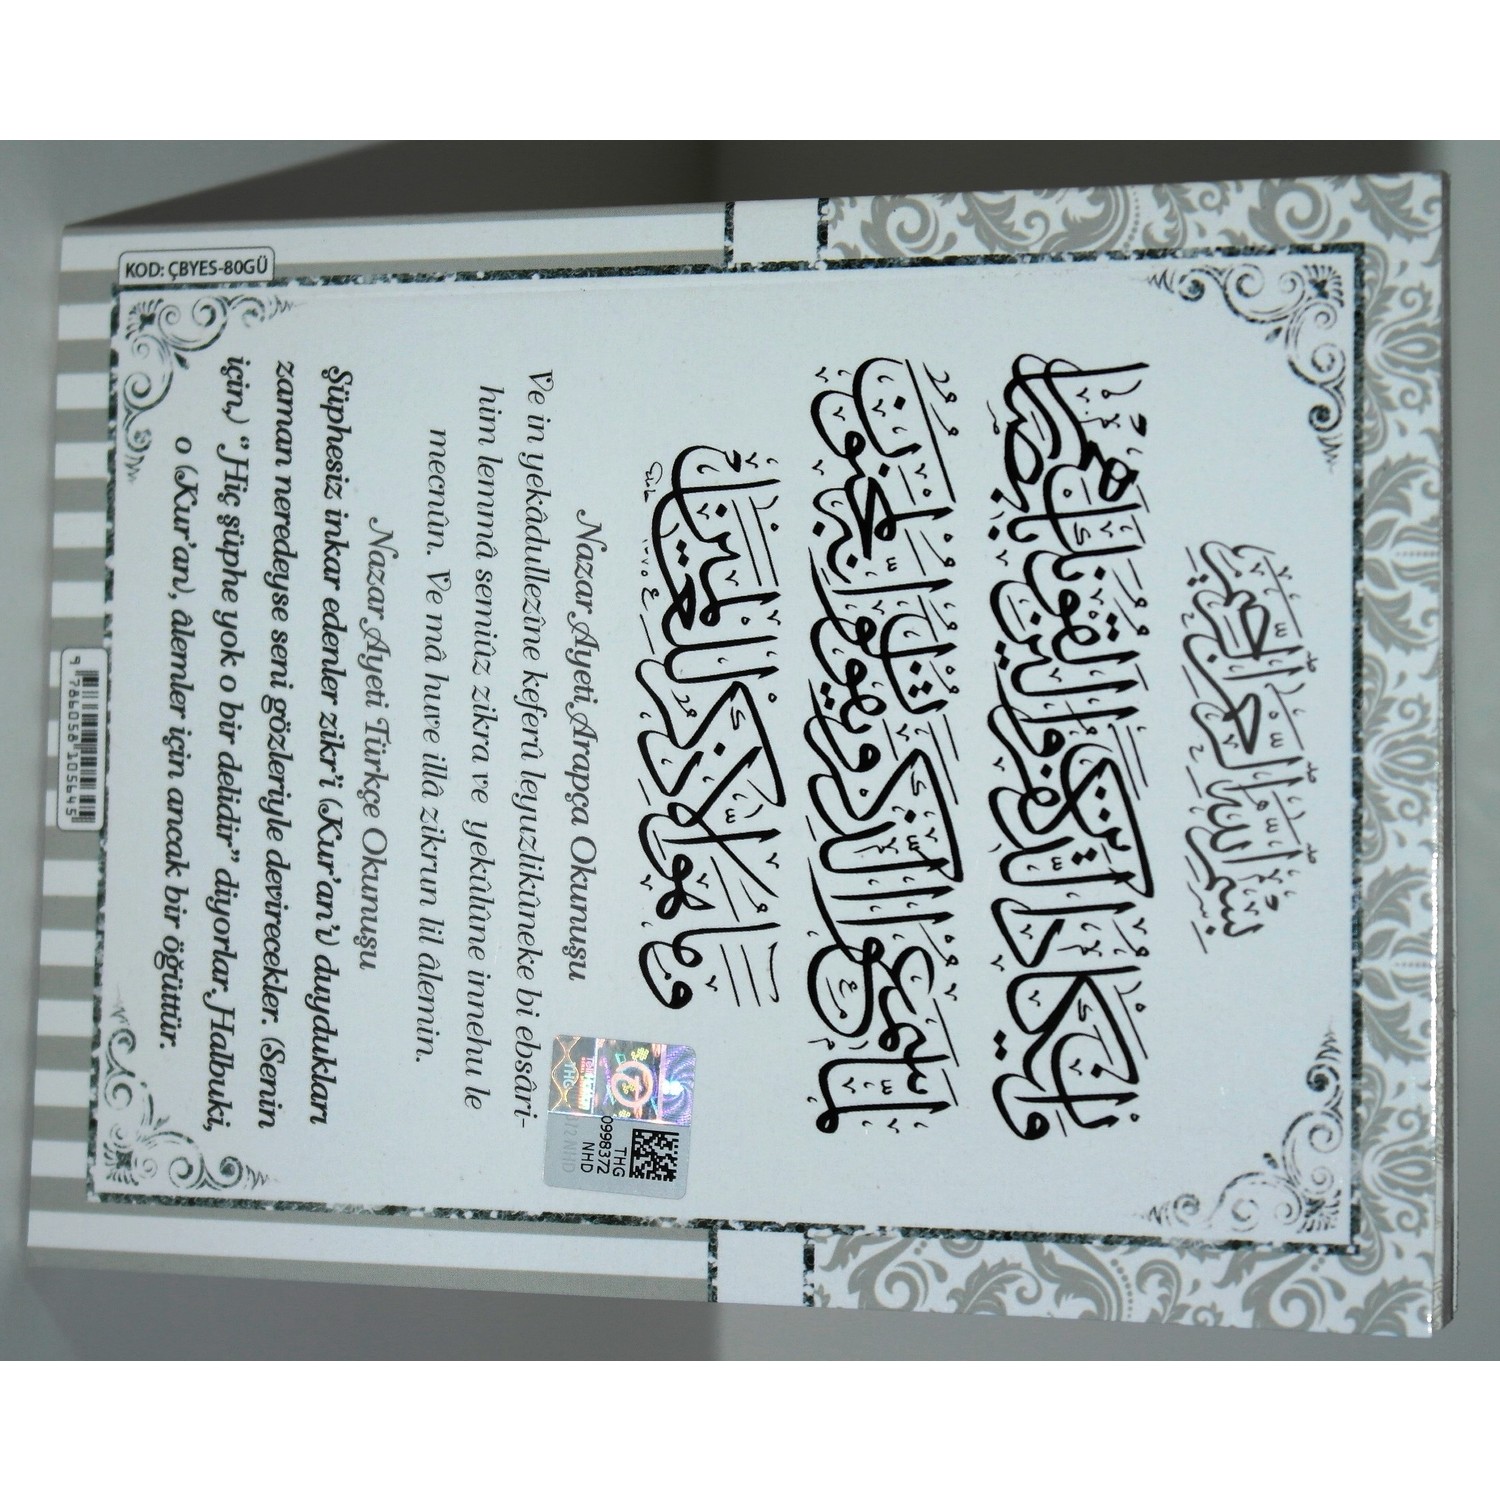 بسم الله الرحمن الرحيم
وان يكاد الذين كفروا ليزلقونك بابصارهم
لما سمعوا الذكر ويقولون انه لمجنون
وما هو الا ذكر للعالمين
Nazar Ayeti Arapça Okunuşu
Ve in yekâdullezîne keferû leyuzlikûneke bi ebsâri-
him lemmâ semiûz zikra ve yekûlûne innehu le
mecnûn. Ve mâ huve illâ zikrun lil âlemin.
Nazar Ayeti Türkçe Okunuşu
Şüphesiz inkar edenler zikr'i (Kur'an'ı) duydukları
zaman neredeyse seni gözleriyle devirecekler. (Senin
için,) "Hiç şüphe yok o bir delidir" diyorlar. Halbuki,
o (Kur'an), âlemler için ancak bir öğüttür.
THG
0998372
NHD
THG
KOD: ÇBYES-80GÜ
9 786058 105645